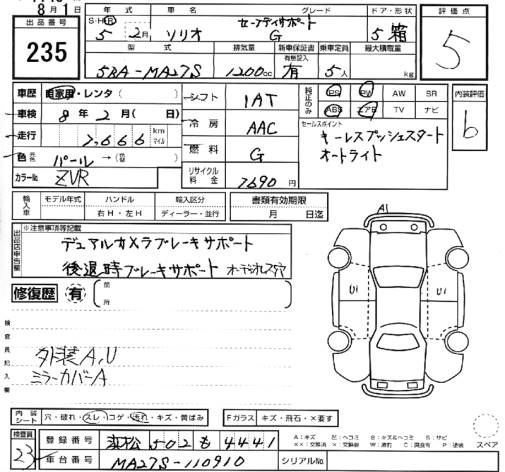 8月1日
出品番号
235
年式
車名
グレード
ドア・形状
S・H R
5年 2月
ソリオ
セーフティサポート
G
5 箱
型式
排気量
新車保証書
有無記入
乗車定員
最大積載量
5BA-MA27S
1200cc
有
5人
kg
評価点
5
車歴
自家用・レンタ( )
シフト
1AT
純正のみ
PS PW AW SR
ABS エアB TV ナビ
内装評価
b
車検
8年2月( 日)
冷房
AAC
セールスポイント
キーレスプッシュスタート
オートライト
走行
7,666
km
マイル
燃料
G
色
パール→( )
カラーNo
ZVR
リサイクル料金
7690円
輸入車
モデル年式
ハンドル
右H・左H
輸入区分
ディーラー・並行
書類有効期限
月 日迄
出品店申告欄
※注意事項等記載
デュアルカメラブレーキサポート
後退時ブレーキサポート オーディオレス
修復歴
有
箇所
A1
U1
U1
検査員記入欄
外装A,U
ミラーカバーA
内装シート
穴・破れ・スレ・コゲ・汚れ・キズ・黄ばみ
Fガラス
キズ・飛石・×要す
検査員
23
登録番号
浜松 502 も 4441
車台番号
MA27S-110910
シリアルNo.
A:キズ E:ヘコミ B:キズ&ヘコミ S:サビ
スペア